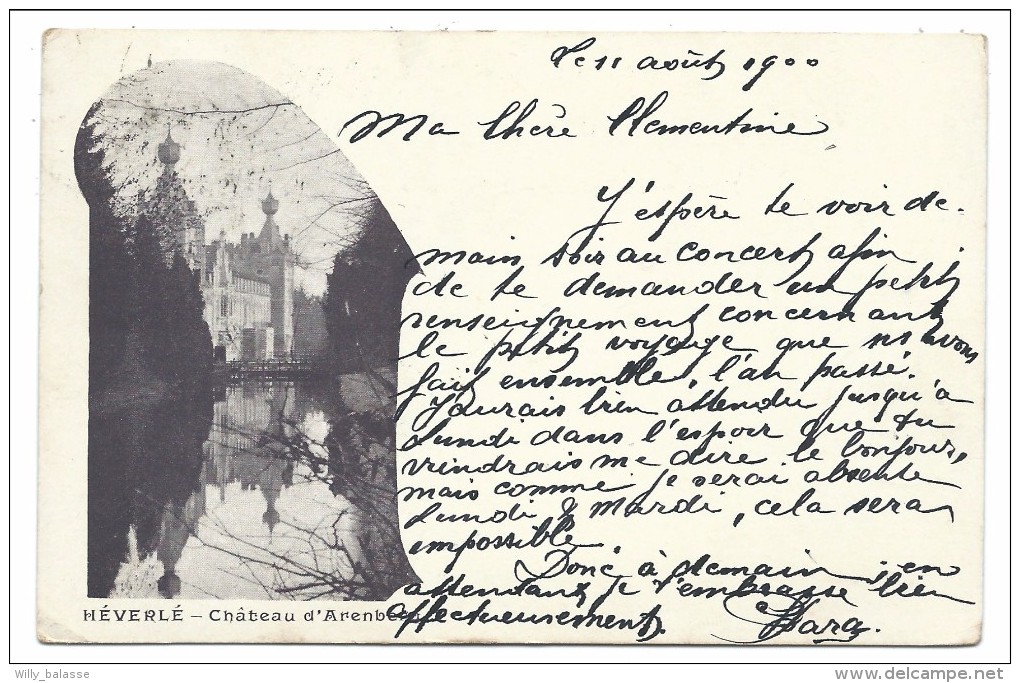 Le 11 août 1900
Ma Chère Clementine
J'espère te voir de-
main soir au concert afin
de te demander un petit
renseignement concernant
le petit voyage que ns avons
fait ensemble, l'an passé.
J'aurais bien attendu jusqu'à
Lundi dans l'espoir que tu
viendrais me dire le bonjour,
mais comme je serai absente
Lundi & Mardi, cela sera
impossible.
Donc à demain ; en
attendant je t'embrasse bien
affectueusement.
Clara.
HÉVERLÉ – Château d'Arenberg
Willy_balasse
http://www.delcampe.net